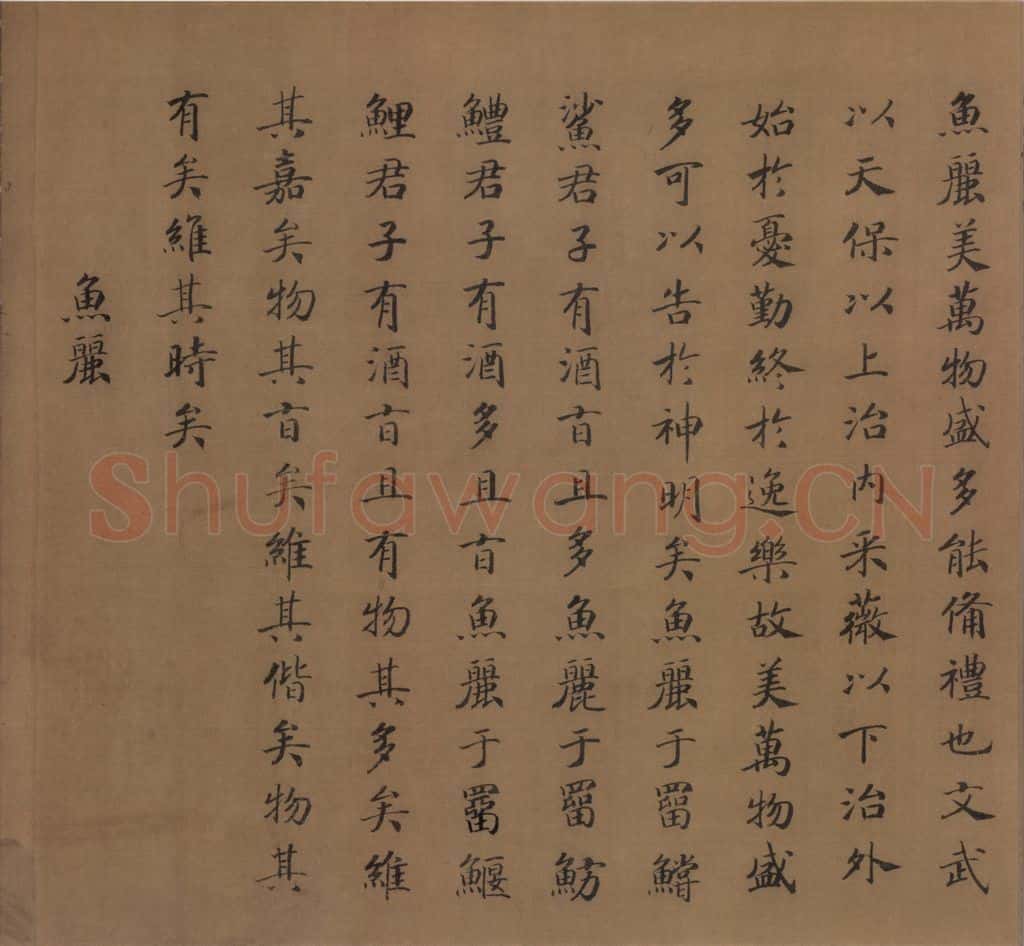 魚麗美萬物盛多能備禮也文武
以天保以上治内采薇以下治外
始於憂勤終於逸樂故美萬物盛
多可以告於神明矣魚麗于罶鱨
鯊君子有酒旨且多魚麗于罶魴
鱧君子有酒多且旨魚麗于罶鰋
鯉君子有酒旨且有物其多矣維
其嘉矣物其旨矣維其偕矣物其
有矣維其時矣
魚麗
Shufawang.CN